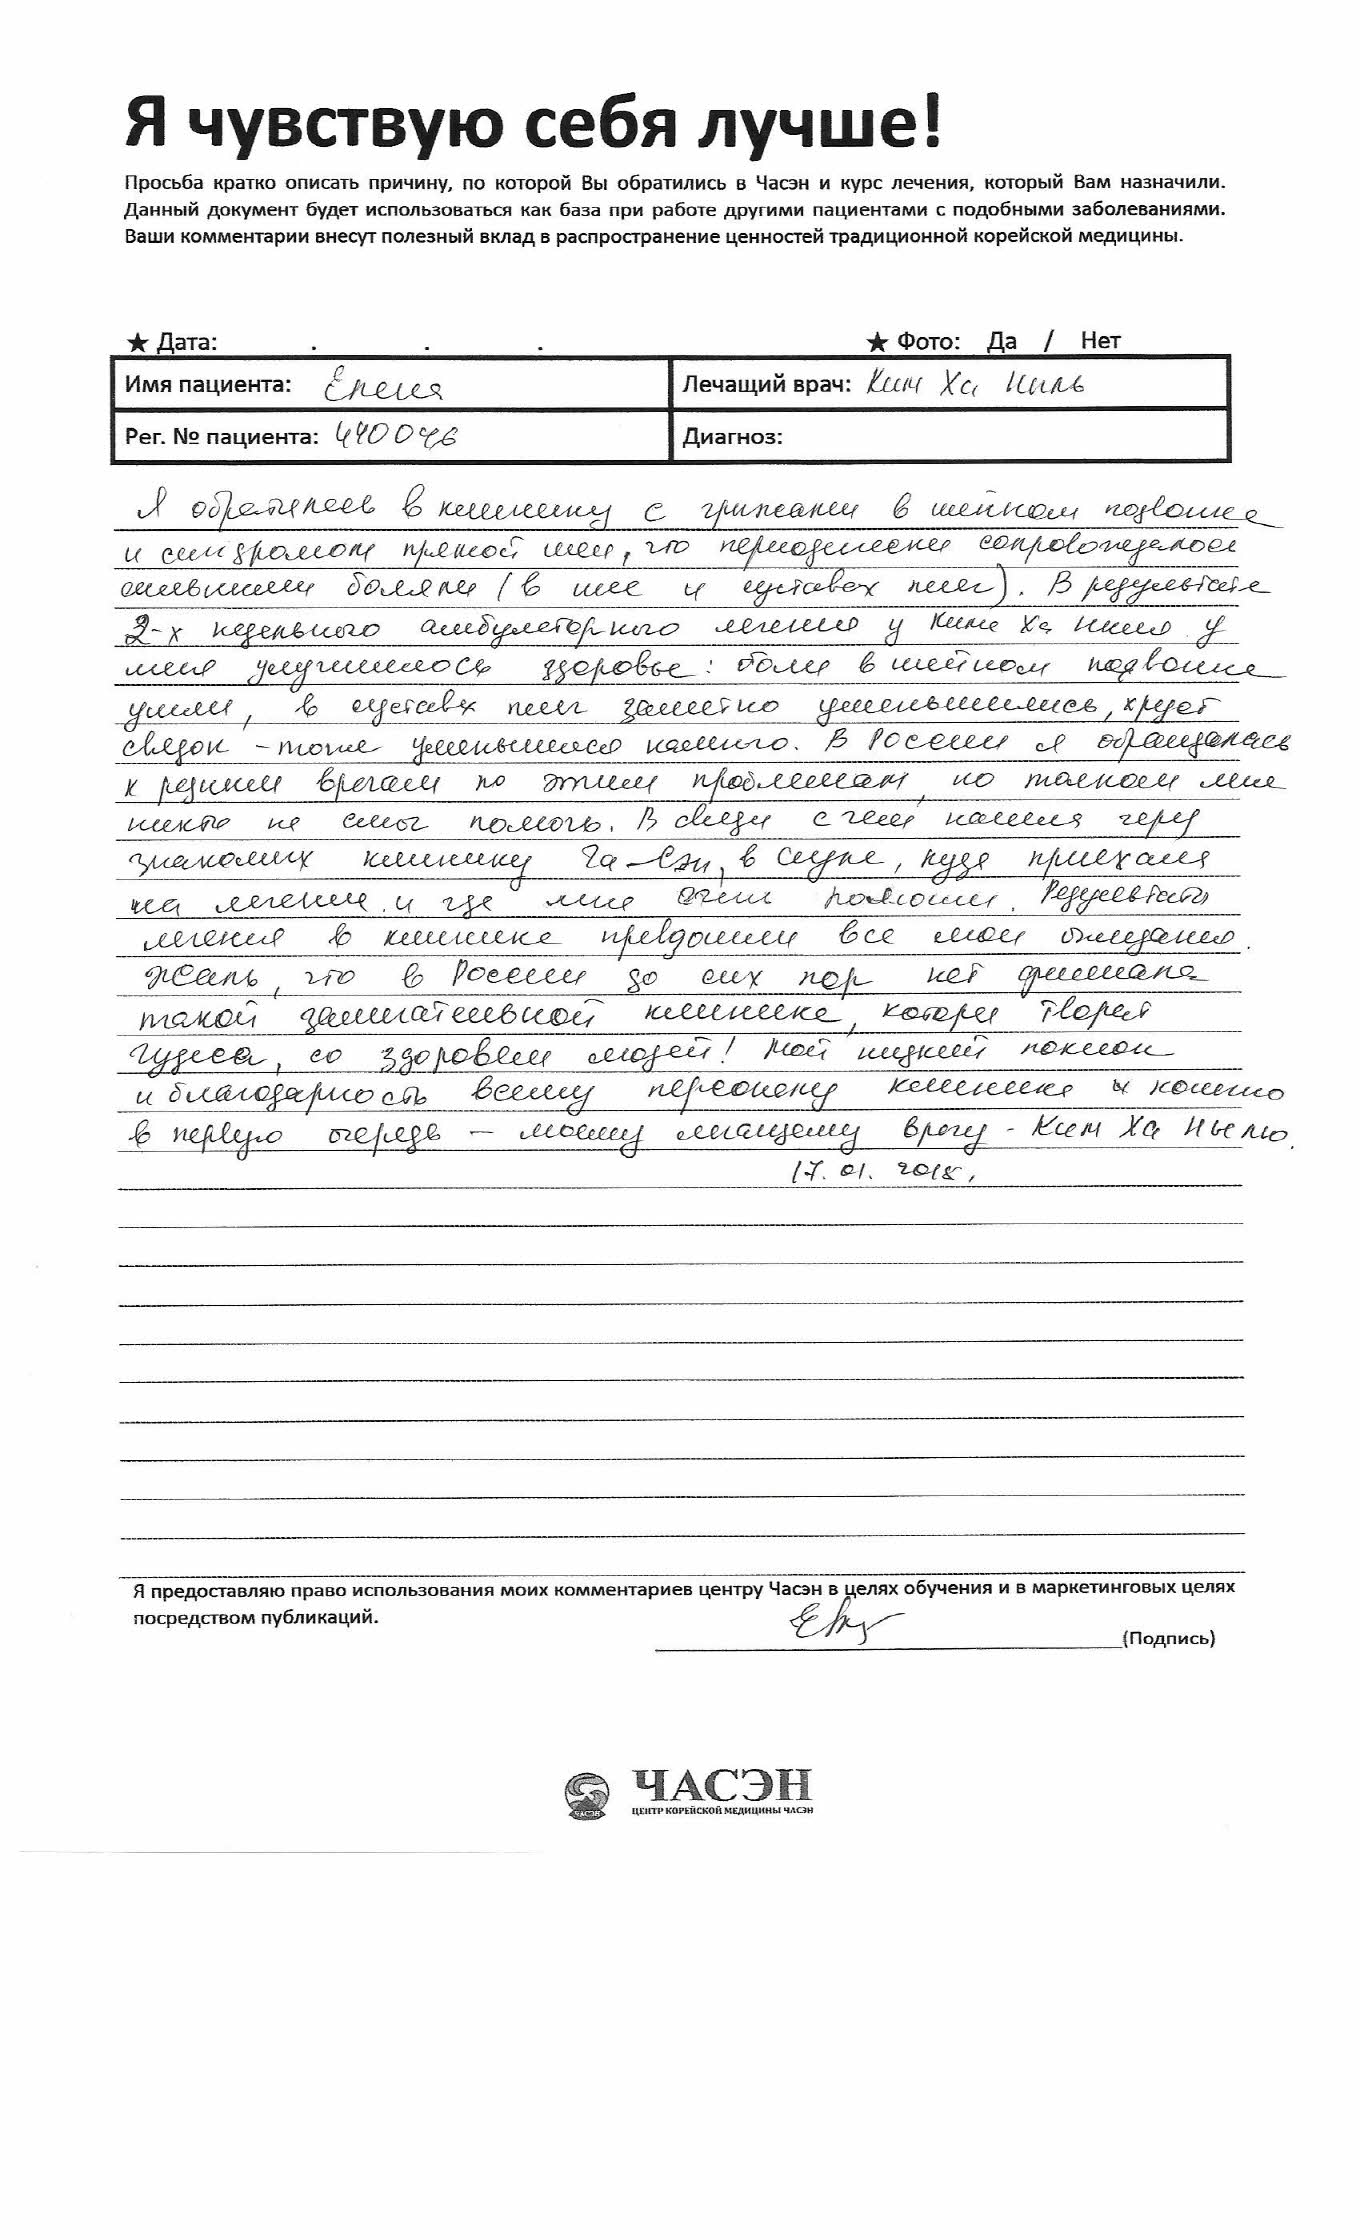 Я чувствую себя лучше!
Просьба кратко описать причину, по которой Вы обратились в Часэн и курс лечения, который Вам назначили.
Данный документ будет использоваться как база при работе другими пациентами с подобными заболеваниями.
Ваши комментарии внесут полезный вклад в распространение ценностей традиционной корейской медицины.
★ Дата: . . . ★ Фото: Да / Нет
Имя пациента: Елена Лечащий врач: Ким Ха Ниль
Рег. № пациента: 440046 Диагноз:
Я обратилась в клинику с грыжами в шейном позвонке
и синдромом прямой шеи, что периодически сопровождалось
сильными болями (в шее и суставах плеч). В результате
2-х недельного амбулаторного лечения у Кима Ха Ниля у
меня улучшилось здоровье: боли в шейном позвонке
ушли, в суставах плеч заметно уменьшились, хруст
связок - тоже уменьшился намного. В России я обращалась
к разным врачам по этим проблемам, но толком мне
никто не смог помочь. В связи с чем нашла через
знакомых клинику Ча-Сэн, в Сеуле, куда приехала
на лечение и где мне очень помогли. Результаты
лечения в клинике превзошли все мои ожидания.
Жаль, что в России до сих пор нет филиала
такой замечательной клинике, которая творят
чудеса, со здоровьем людей! Мой низкий поклон
и благодарность всему персоналу клинике и конечно
в первую очередь - моему лечащему врачу - Ким Ха Нылю.
17.01.2018.
Я предоставляю право использования моих комментариев центру Часэн в целях обучения и в маркетинговых целях
посредством публикаций.
(Подпись)
ЧАСЭН
ЦЕНТР КОРЕЙСКОЙ МЕДИЦИНЫ ЧАСЭН
ЧАСЭН